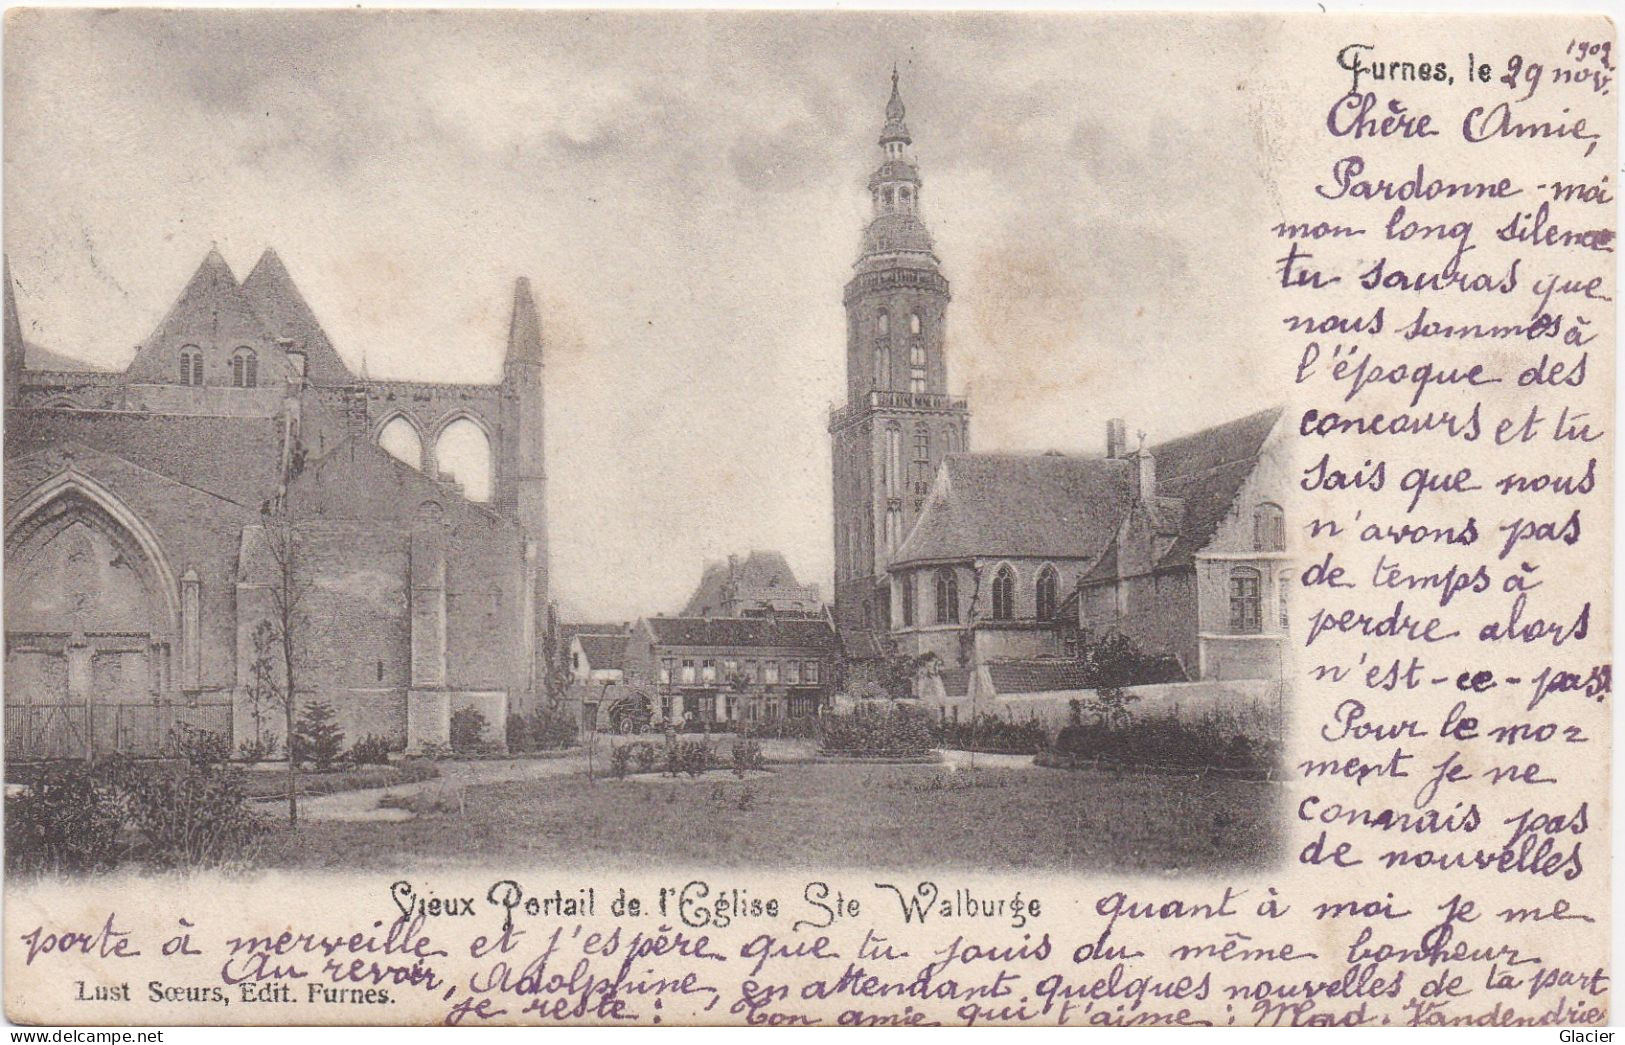 Furnes, le 29 nov. 1902
Chère Amie,
Pardonne-moi
mon long silence
tu sauras que
nous sommes à
l'époque des
concours et tu
sais que nous
n'avons pas
de temps à
perdre alors
n'est-ce-pas!
Pour le mo=
ment je ne
connais pas
de nouvelles
Vieux Portail de l'Eglise Ste Walburge
quant à moi je me
porte à merveille et j'espère que tu jouis du même bonheur
Au revoir, Adolphine, en attendant quelques nouvelles de ta part
Lust Sœurs, Edit. Furnes.
je reste: Ton amie qui t'aime: Mad. Vandendrie
Glacier